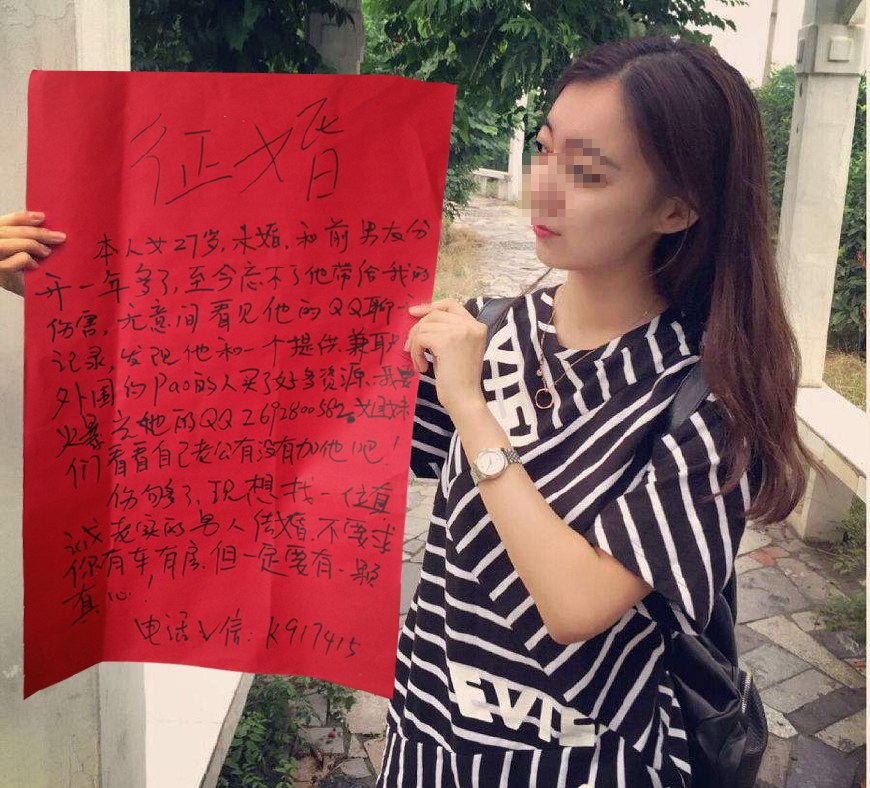 征婚
本人女27岁,未婚,和前男友分
开一年多了,至今忘不了他带给我的
伤害,无意间看见他的QQ聊
记录,发现他和一个提供兼职
外围的Pao的人买了好多资源,我要
火暴光她的QQ2692800582。姐妹
们看看自己老公有没有加他吧!
伤够了,现想找一位真
诚老实的男人结婚,不要求
你有车,有房,但一定要有一颗
真心!
电话V信:K917415
EVIE